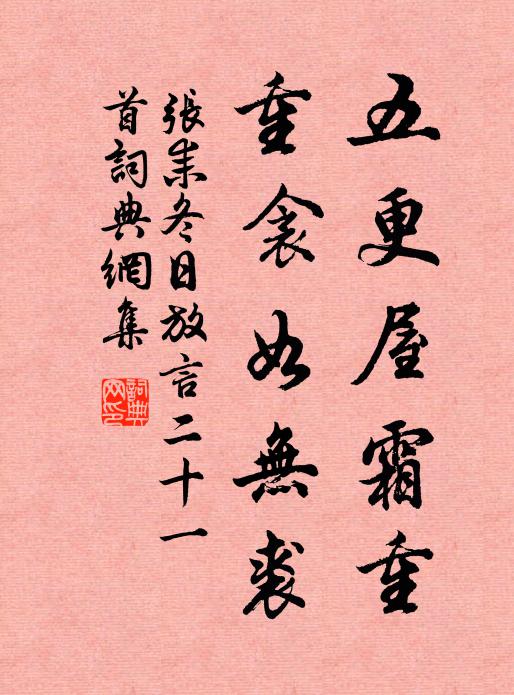 五更屋霜重
重衾如無裘
張耒冬日放言二十一
首詞典網集
詞典
网印